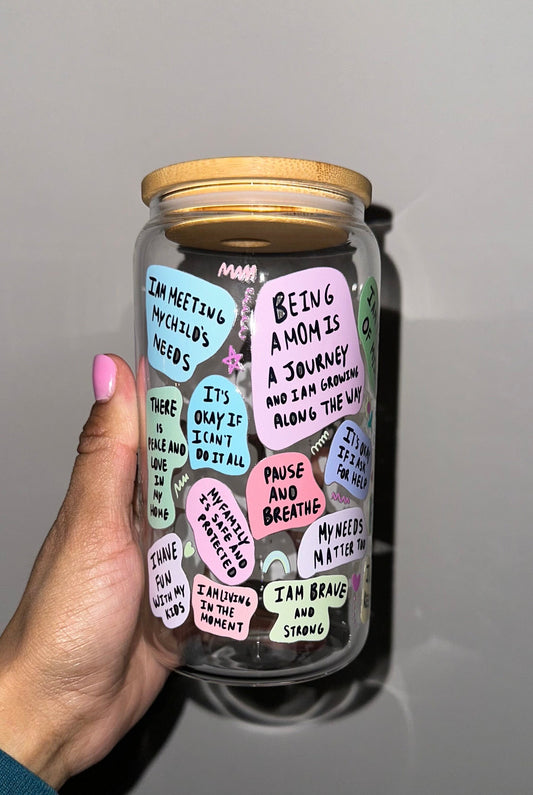 I AM MEETING
MY CHILD'S
NEEDS
BEING
A MOM IS
A JOURNEY
AND I AM GROWING
ALONG THE WAY
THERE
IS
PEACE AND
LOVE
IN
MY
HOME
IT'S
OKAY IF
I CAN'T
DO IT ALL
IT'S OKAY
IF I ASK
FOR HELP
PAUSE
AND
BREATHE
MY FAMILY
IS SAFE AND
PROTECTED
MY NEEDS
MATTER TOO
I HAVE
FUN
WITH MY
KIDS
I AM LIVING
IN THE
MOMENT
I AM BRAVE
AND
STRONG